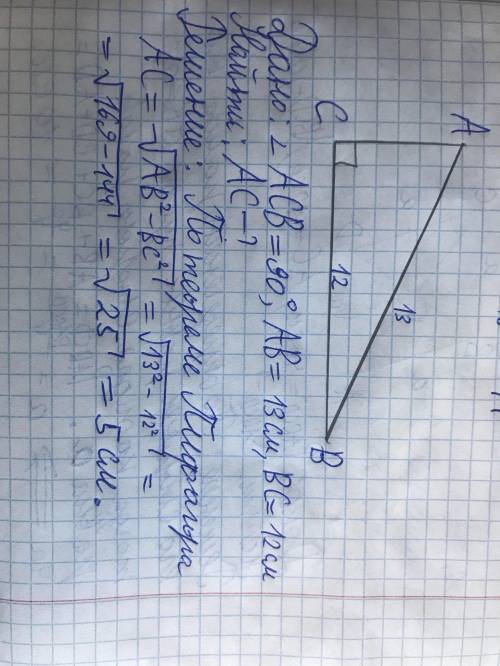 A
13
C
12
B
Дано: ∠ ACB = 90°, AB = 13 см, BC = 12 см
Найти: AC - ?
Решение: По теореме Пифагора
AC = √AB² - BC² = √13² - 12² =
= √169 - 144 = √25 = 5 см.